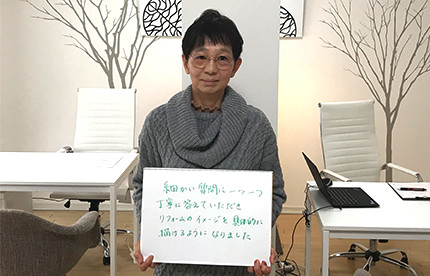 細かい質問に一つ一つ
丁寧に答えていただき
リフォームのイメージを具体的に
描けるようになりました